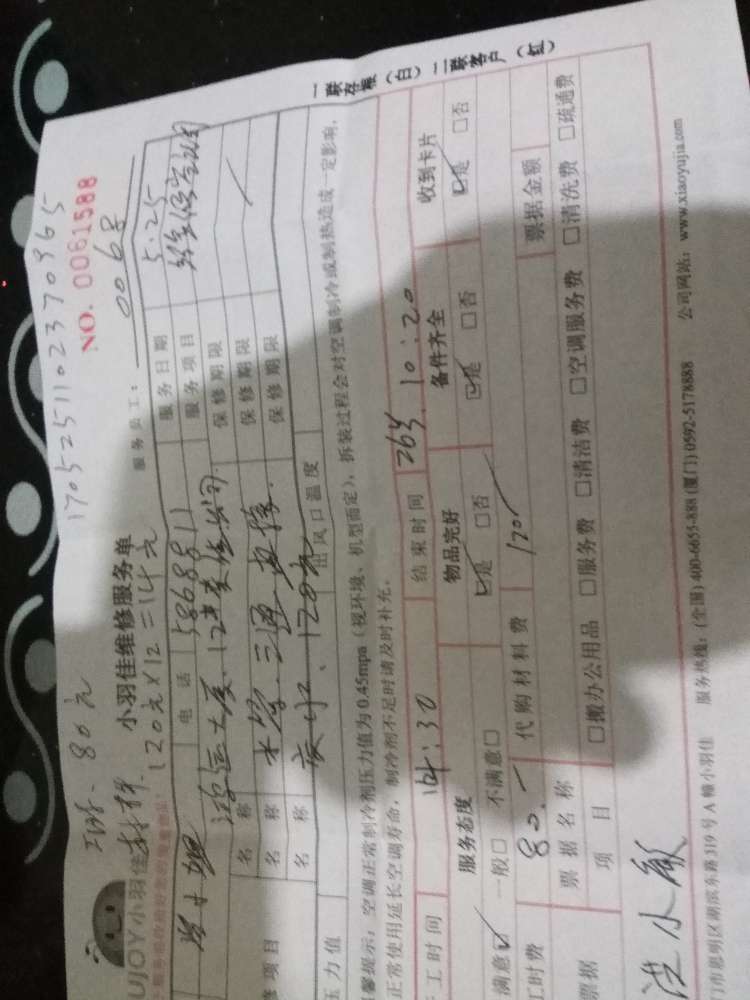 1705251102370965
工时. 80元
NO. 0061588
UJOY小羽佳 材料. 120元×12=14元
小羽佳维修服务单
服务员工: 0068
电话 58688811 服务日期 5.25
服务项目
名称 保修期限
修项目 名称 水管.三通.直接. 保修期限
名称 保修期限
压力值 出风口温度
馨提示: 空调正常制冷剂压力值为0.45mpa (视环境、机型而定), 拆装过程会对空调制冷或制热造成一定影响,
正常使用延长空调寿命, 制冷剂不足时请及时补充。
工时间 14:30 结束时间 10:20
服务态度 物品完好 备件齐全 收到卡片
满意☑ 一般□ 不满意□ ☑是 □否 ☑是 □否 ☑是 □否
工时费 80.- 代购材料费 120
票据 票据名称 票据金额
项目 □搬办公用品 □服务费 □清洁费 □空调服务费 □清洗费 □疏通费
门市思明区湖滨东路319号A幢小羽佳 服务热线: (全国) 400-6655-888 (厦门) 0592-5178888 公司网站: www.xiaoyujia.com
一联存根(白) 二联客户(红)